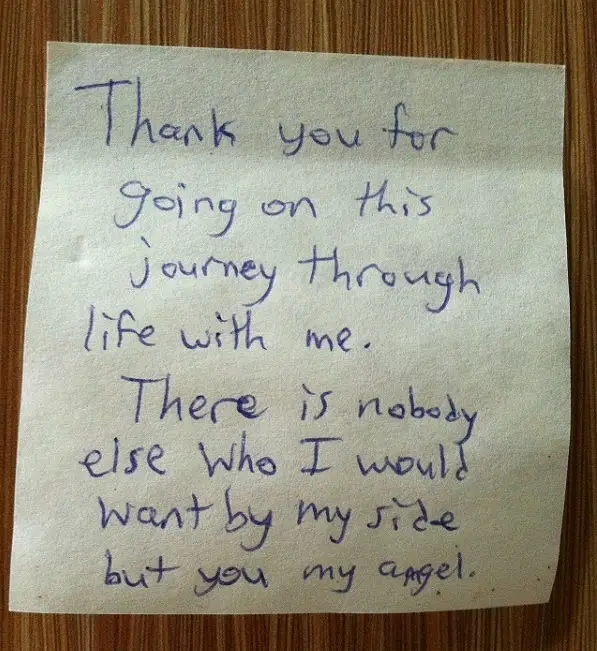 Thank you for
going on this
journey through
life with me.
There is nobody
else who I would
want by my side
but you my angel.